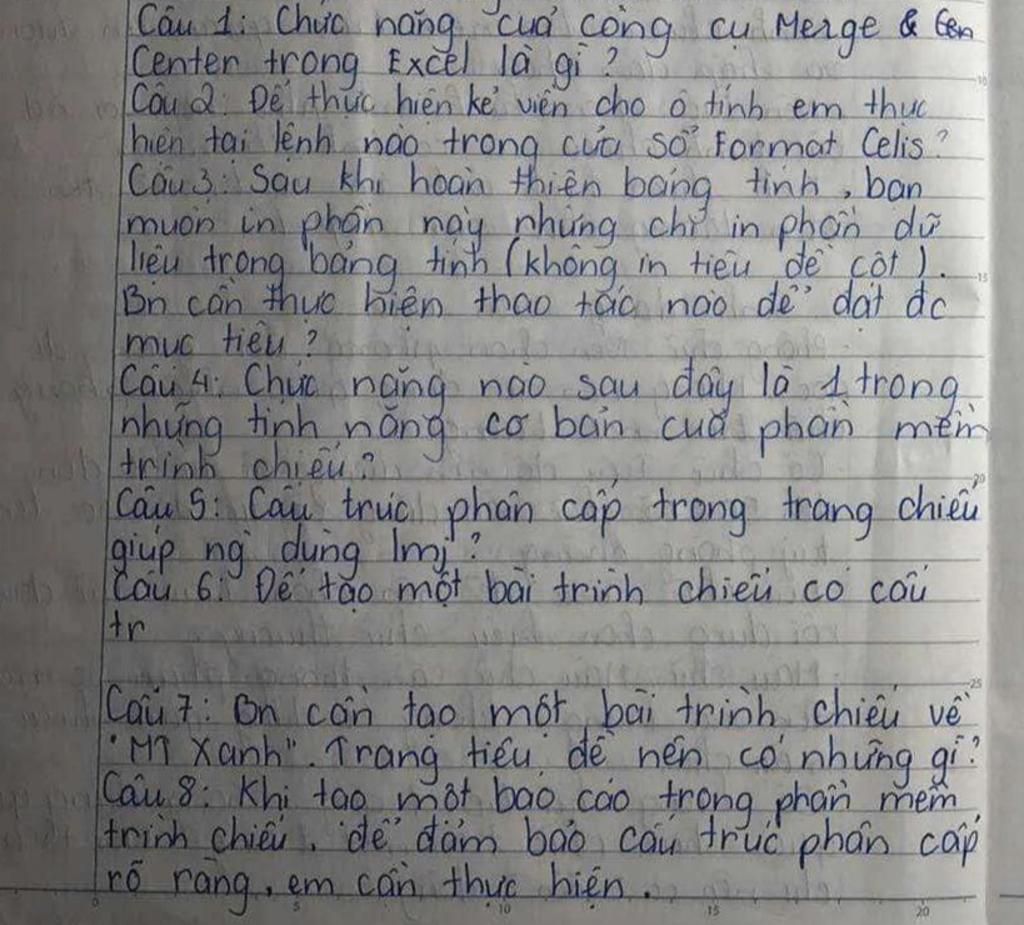 Câu 1: Chức năng cuả công cụ Merge & Cen
Center trong Excel là gì?
Câu 2: Để thực hiện kẻ viền cho ô tính em thực
hiện tại lệnh nào trong cửa sổ Format Celis?
Câu 3: Sau khi hoàn thiện bảng tính, bạn
muốn in phần này nhưng chỉ in phần dữ
liệu trong bảng tính (không in tiêu đề cột).
Bn cần thực hiện thao tác nào để đạt đc
mục tiêu?
Câu 4: Chức năng nào sau đây là 1 trong
những tính năng cơ bản cuả phần mềm
trình chiếu?
Câu 5: Cấu trúc phân cấp trong trang chiếu
giúp ng dùng lmj?
Câu 6: Để tạo một bài trình chiếu có cấu
tr
Câu 7: Bn cần tạo một bài trình chiếu về
"MT Xanh". Trang tiêu đề nên có những gì?
Câu 8: Khi tạo một báo cáo trong phần mềm
trình chiếu, để đảm bảo cấu trúc phân cấp
rõ ràng, em cần thực hiện.